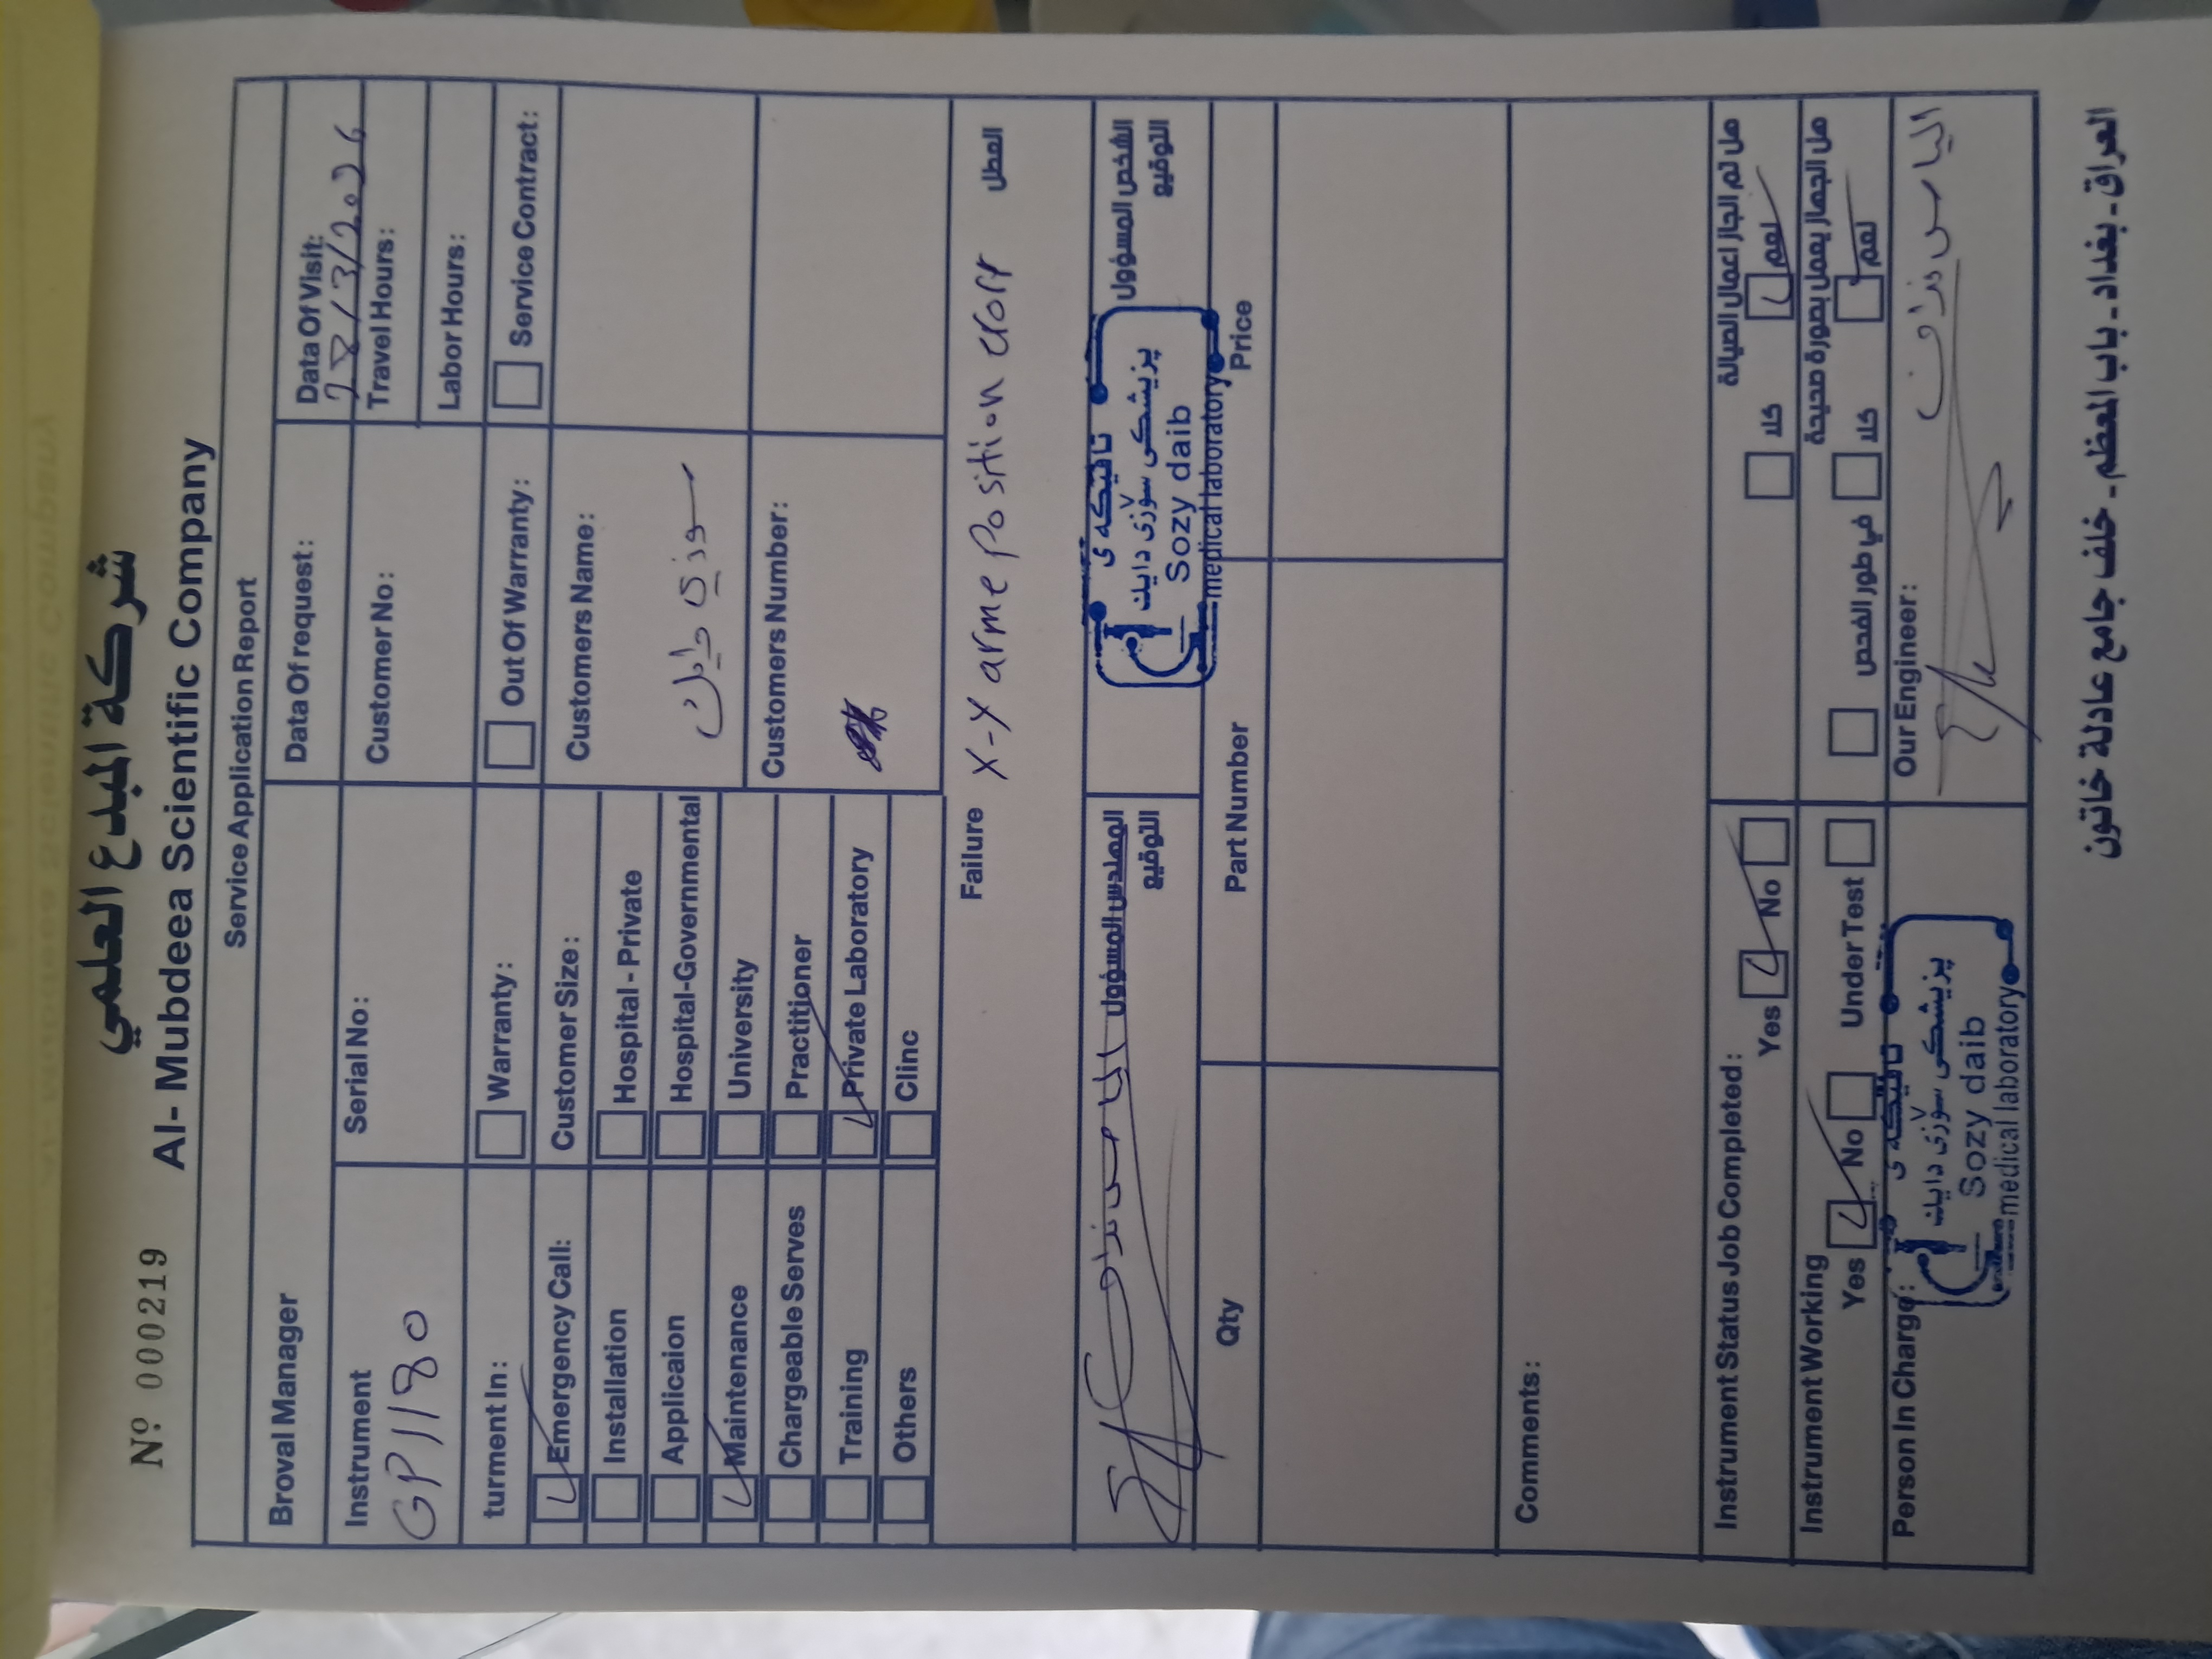 شركة المبدع العلمي
Nº. 000219 Al- Mubdeea Scientific Company
Service Application Report
Broval Manager
Data Of request:
Data Of Visit:
28/3/2026
Instrument
GP1180
Serial No:
Customer No:
Travel Hours:
Labor Hours:
turment In:
Warranty:
Out Of Warranty:
Service Contract:
Emergency Call:
Installation
Applicaion
Maintenance
Chargeable Serves
Training
Others
Customer Size:
Hospital - Private
Hospital-Governmental
University
Practitioner
Private Laboratory
Clinc
Customers Name:
سوزي دايك
Customers Number:
Failure X-Y arme position العطل
المهندس المسؤول
التوقيع
الشخص المسؤول
التوقيع
تاقیگه ی
پزیشکی سۆزی دایك
Sozy daib
medical laboratory
Qty Part Number Price
Comments:
Instrument Status Job Completed:
Yes No
هل تم انجاز اعمال الصيانة
كلا نعم
Instrument Working
Yes No Under Test
هل الجهاز يعمل بصورة صحيحة
في طور الفحص كلا نعم
Person In Charge:
تاقیگه ی
پزیشکی سۆزی دایك
Sozy daib
medical laboratory
Our Engineer:
العراق - بغداد - باب المعظم - خلف جامع عادلة خاتون